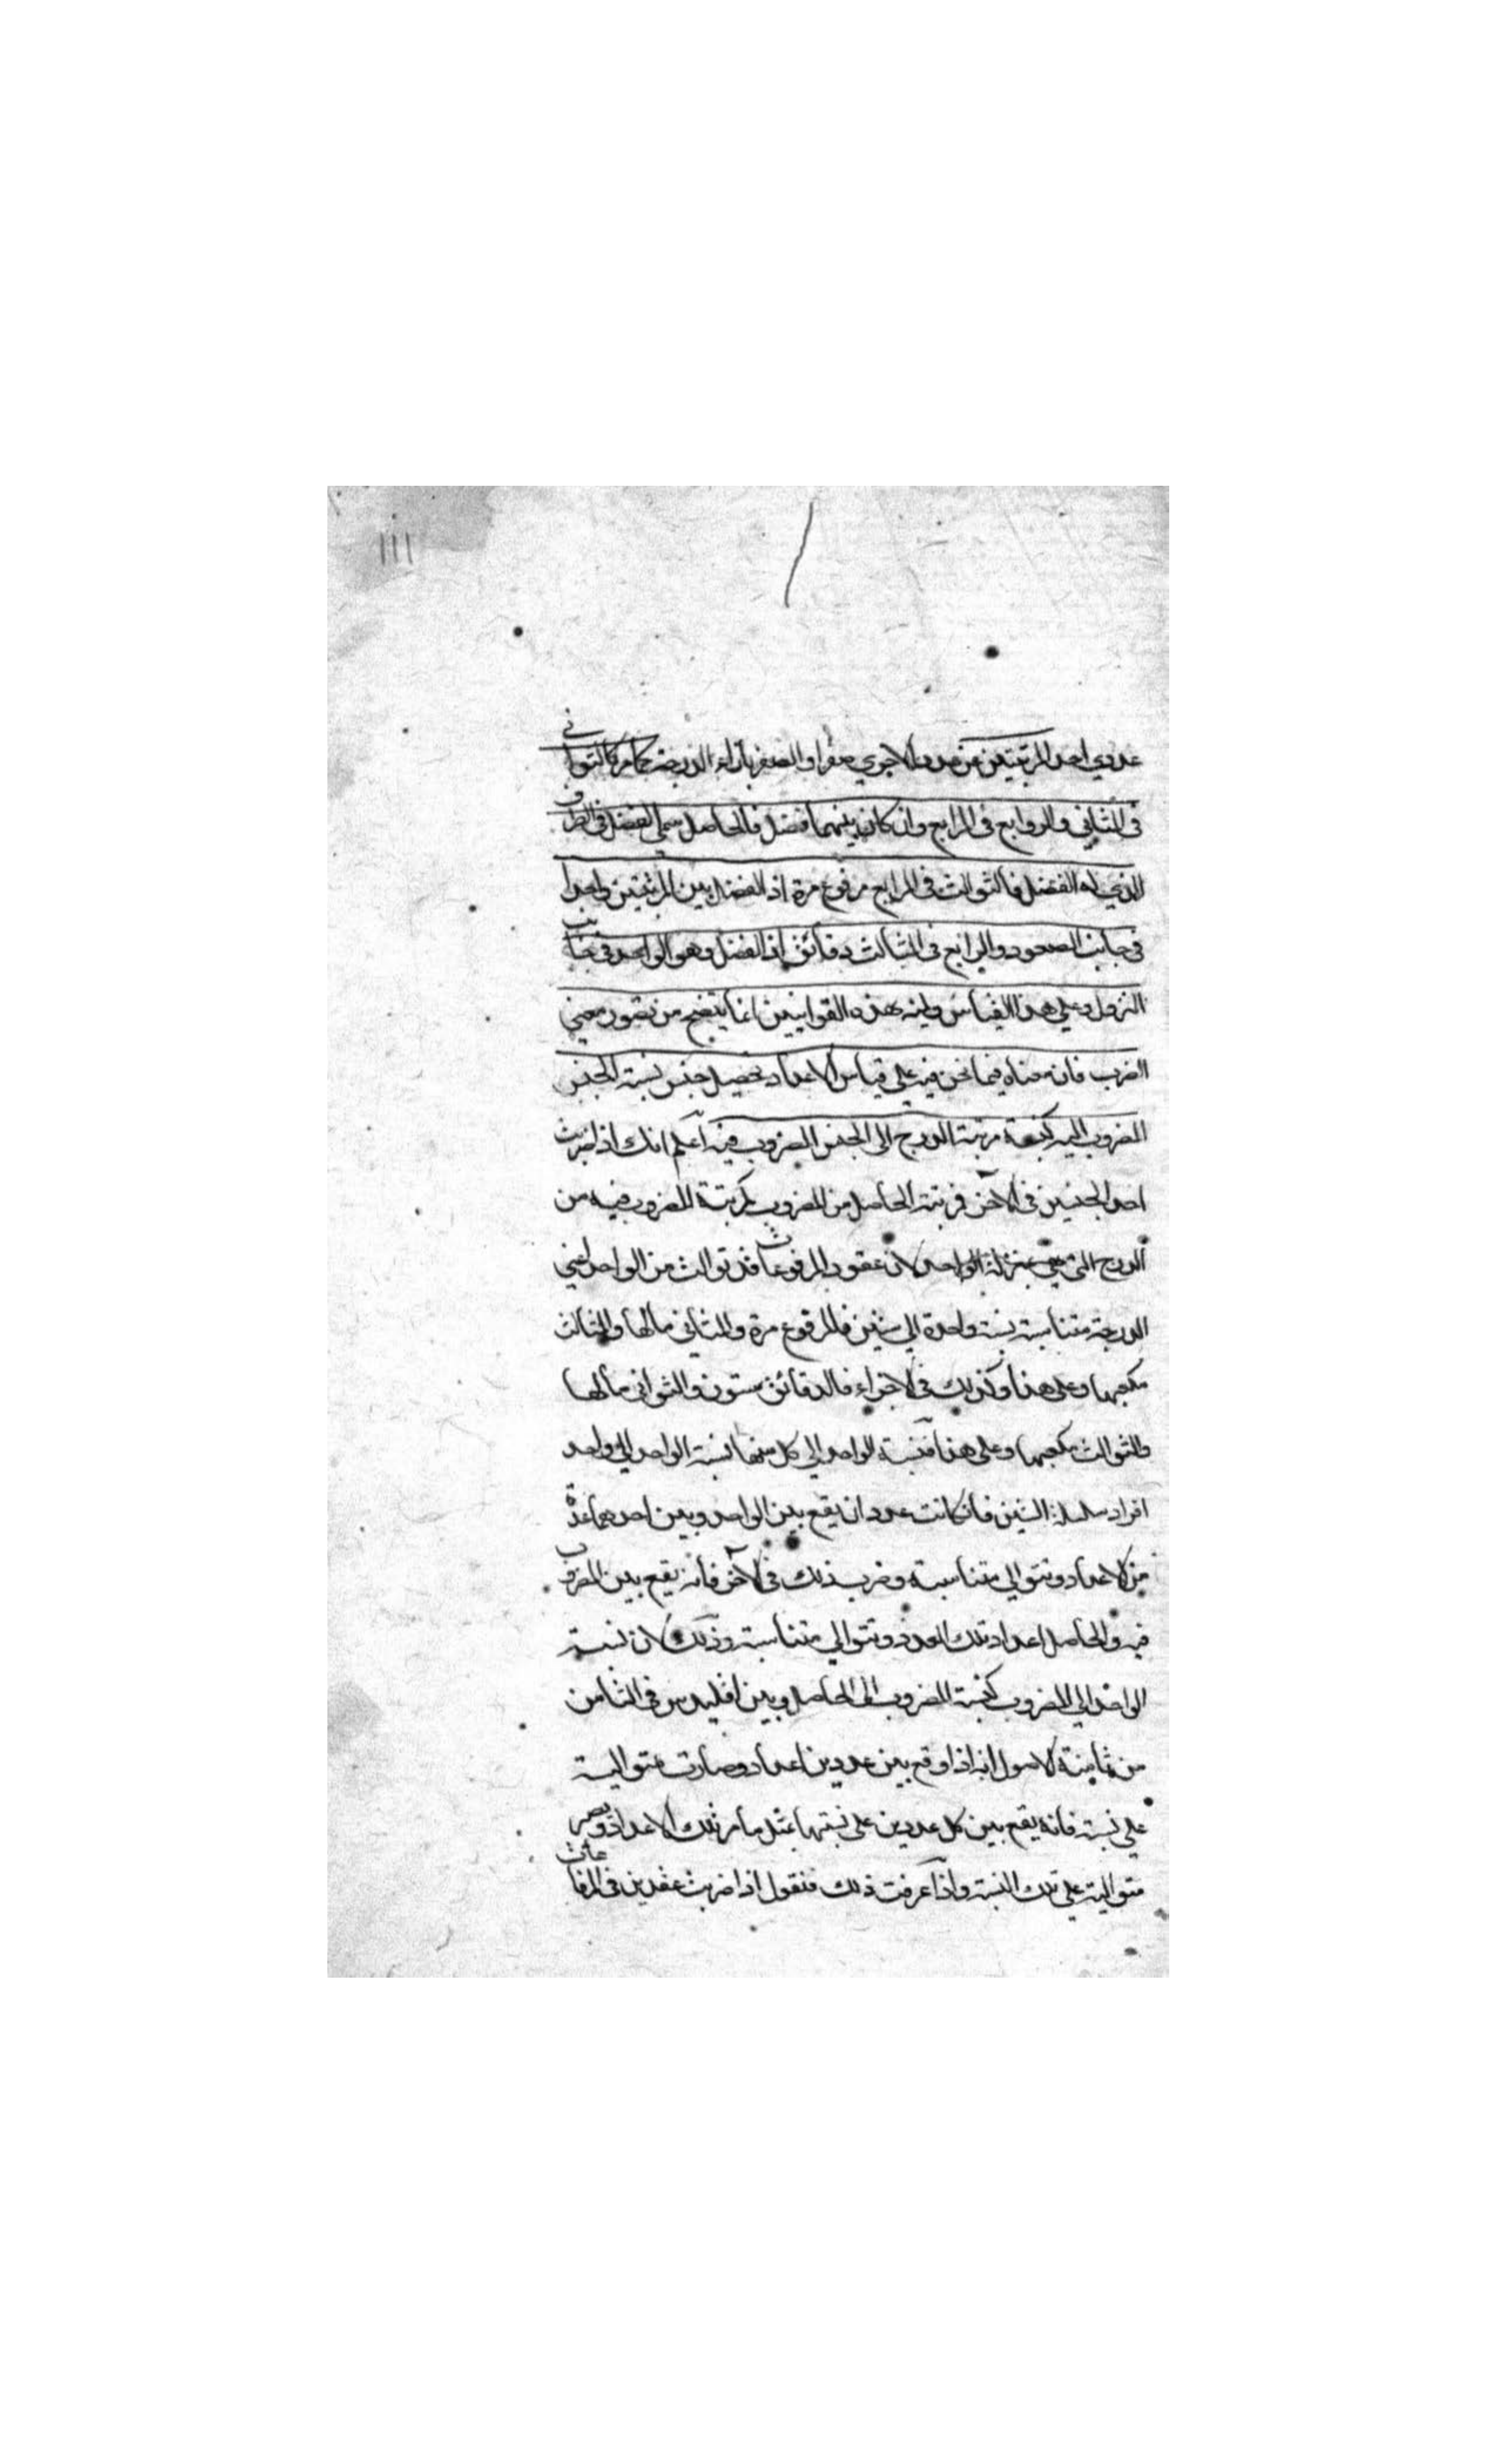 ١١١
عددي احد المرتبتين من عدد الاخرى صفرا والصفر بازاء الدرجة كما مر كالثواني
في الثاني والروابع في الرابع وان كان بينهما فضل فالحاصل سمي الفضل في الطرف
الذي له الفضل فالثوالث في الرابع مرفوع مرة اذ الفضل بين المرتبتين واحدا
في جانب الصعود والرابع في الثالث دقائق اذ الفضل وهو الواحد في جانب
النزول وعلى هذا القياس ولمية هذه القوانين انما يتضح من تصور معنى
الضرب فانه معناه فيما نحن فيه على قياس الاعداد تحصيل جنس نسبة الجنس
المضروب اليه كنسبة مرتبة الدرج الى الجنس المضروب فيه اعلم انك اذا ضربت
احد الجنسين في الآخر فمرتبة الحاصل من المضروب كمرتبة المضروب فيه من
الدرج التي هي بمنزلة الواحد لان عقود المرفوعات قد توالت من الواحد اعني
الدرجة متناسبة بنسبة واحدة الى ستين فالمرفوع مرة والمثاني مالها والمثالث
مكعبها وعلى هذا وكذلك في الاجزاء فالدقائق ستون والثواني مالها
والثوالث مكعبها وعلى هذا فنسبة الواحد الى كل منها نسبة الواحد الى واحد
افراد سلسلة الستين فان كانت عددان يقع بين الواحد وبين احدهما عدة
من الاعداد وتتوالى متناسبة وضرب ذلك في الآخر فانه يقع بين المضروب
فيه والحاصل اعداد تلك العدد وتتوالى متناسبة وذلك لان نسبة
الواحد الى المضروب كنسبة المضروب الى الحاصل وبين اقليدس في الثامن
من ثامنة الاصول انه اذا وقع بين عددين اعداد وصارت متوالية
على نسبة فانه يقع بين كل عددين على نسبتهما مثل ما مر تلك الاعداد ويصير
متوالية على تلك النسبة واذا عرفت ذلك فنقول اذا ضربت عقدين في المرفوعات